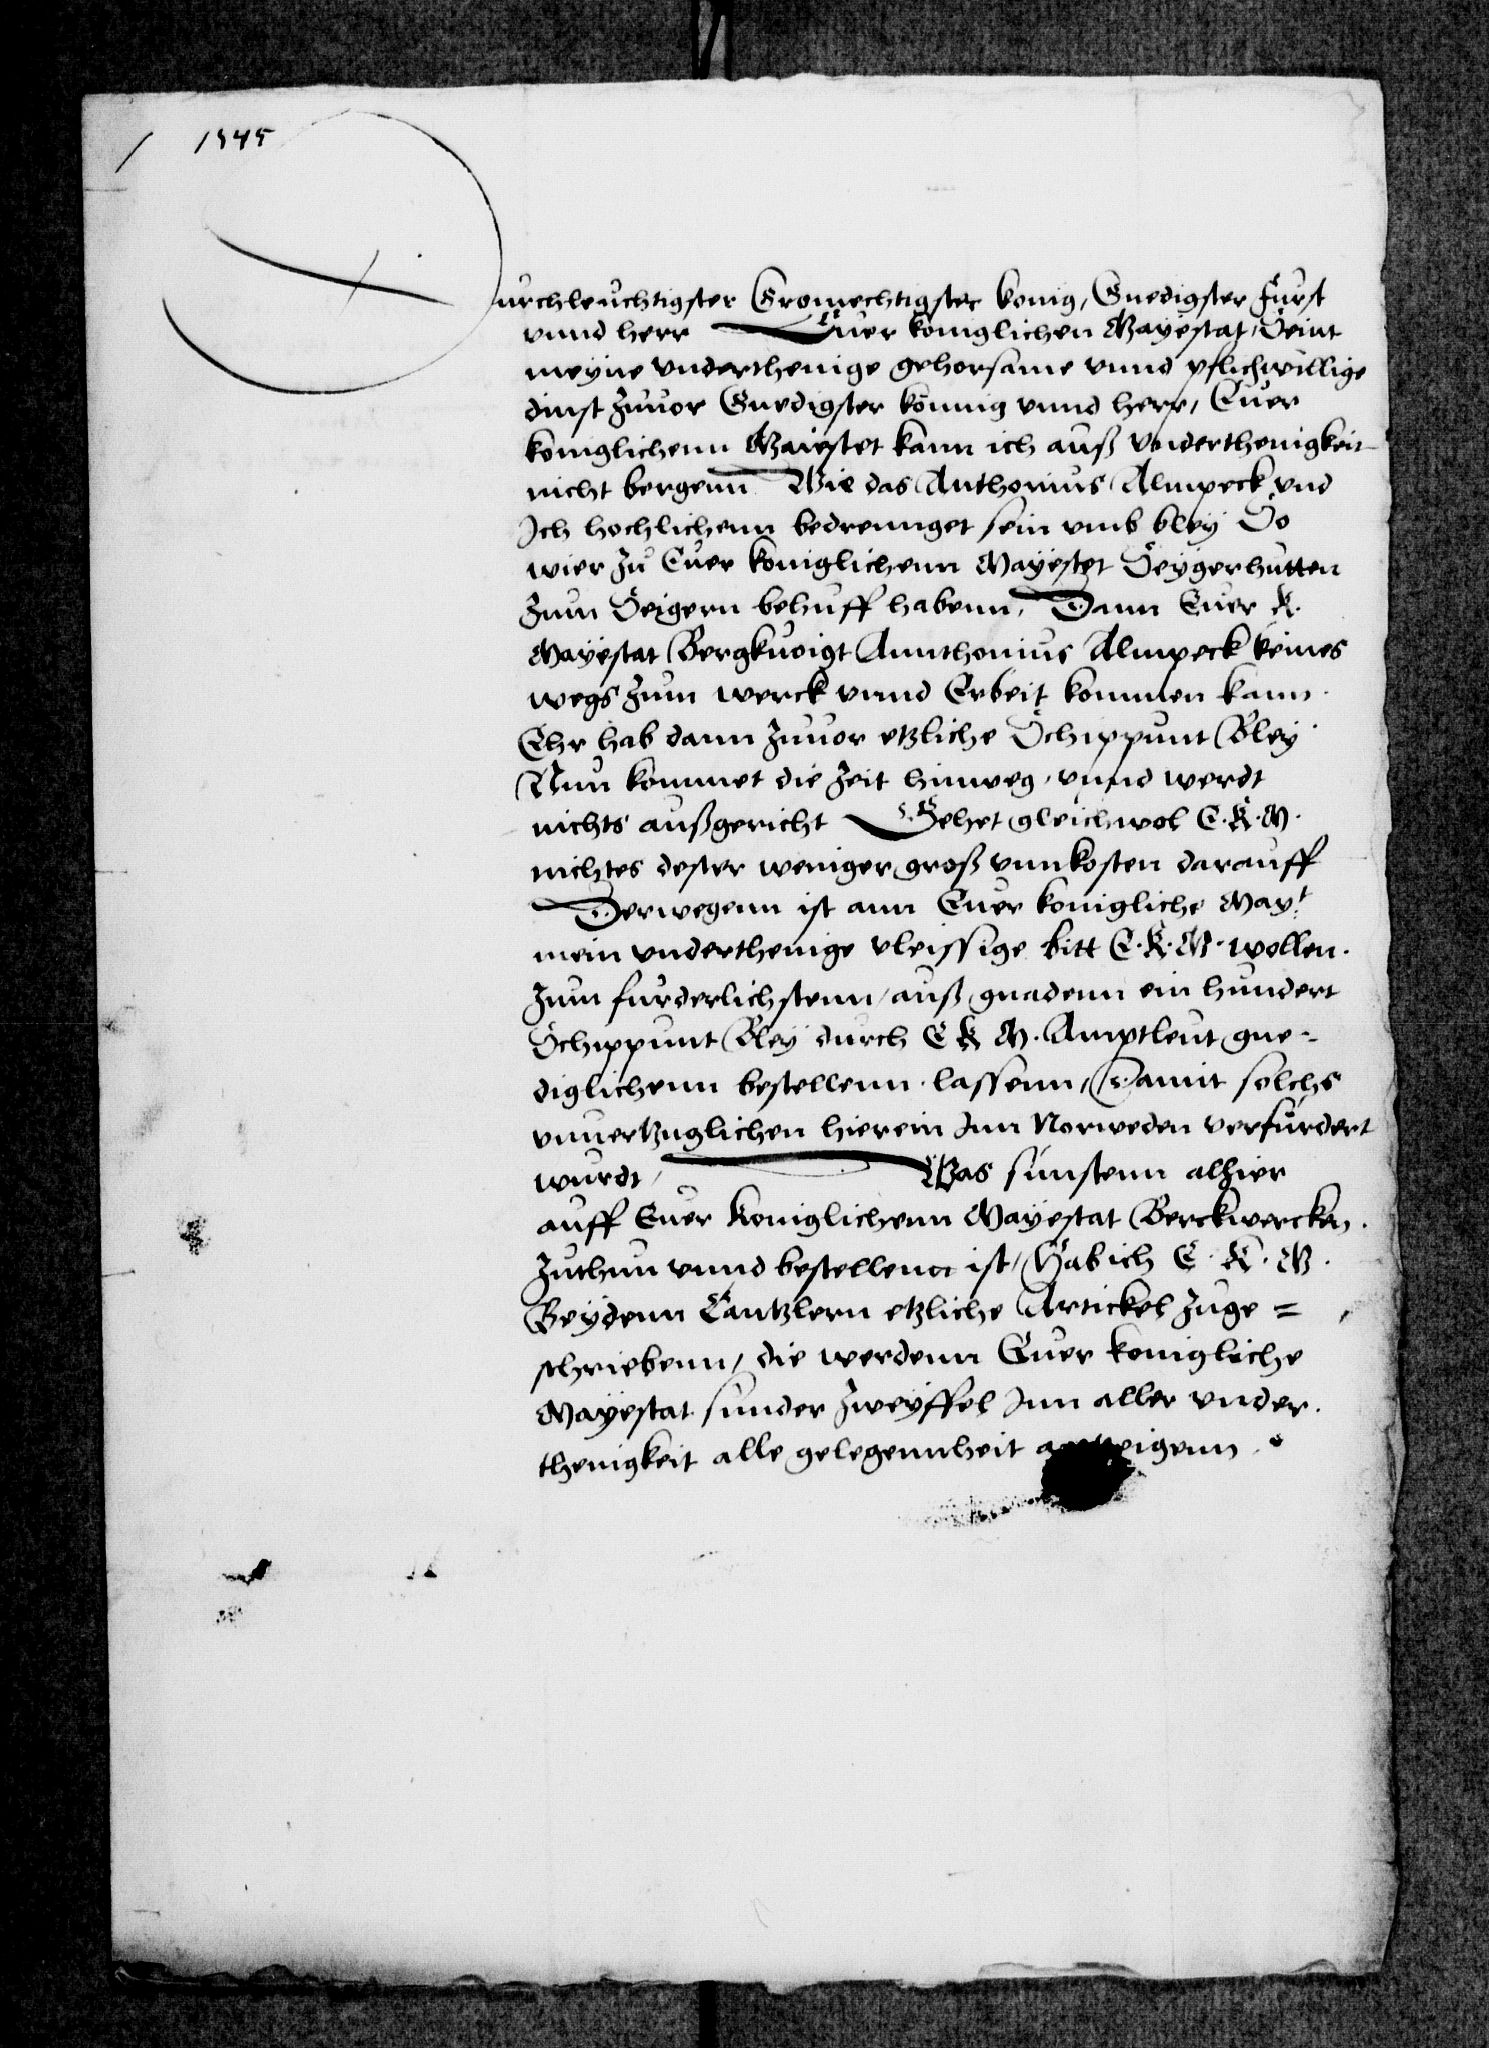 / 1545
Durchleuchtigster Gromechtigster konig, Gnedigster Furst
vnnd herr Euer koniglichen Mayestat, Seint
meyne vnderthenige gehorsame vnnd pflichwillige
dinst zuuor Gnedigster konnig vnnd herr, Euer
koniglichenn Maiestet kann ich auß vnderthenigkeit
nicht bergenn Wie das Anthonius Almpeck vnd
Ich hochlichenn bedrenget sein vmb bley So
wier zu Euer koniglichenn Mayestet Seygerhutten
zum Seigern behuff habenn, Dann Euer K.
Mayestat Bergkuoigt Annthonius Almpeck keines
wegs zum werck vnnd Erbeit kommen kann.
Ehr hab dann zuuor etzliche Schippunt Bley
Nun kommet die Zeit hinweg, vnnd werdt
nichts außgericht Gehet gleichwol E. K. M.
nichtes dester weniger groß vnnkosten darauff
Derwegenn ist ann Euer konigliche Mayt
mein vnderthenige vleissige bitt E. K. M. wollen.
zum furderlichstenn, auß gnadenn ein hundert
Schippunt Bley durch E K M. Amptleut gne-
diglichenn bestellenn lassenn, Damit solchs
vnuerzuglichen hierein Inn Norweden verfurdert
wurdt, Was sunstenn alhier
auff Euer Koniglichenn Mayestat Berckwercken.
zuthun vnnd bestellenn ist, Hab ich E. K. M.
Beydenn Cantzlern etzliche Artickel zuge=
schriebenn, die werdenn Euer konigliche
Mayestat sunder zweyffel Inn aller vnder.
thenigkeit alle gelegennheit antzeigenn.